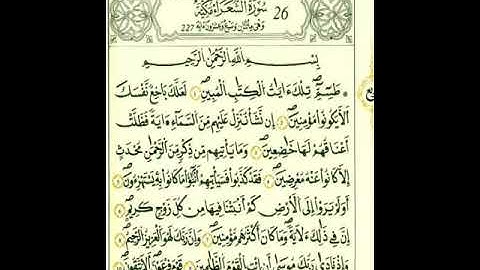 سُورَةُ الشُّعَرَاءِ مَكِّيَّةٌ 26
وَهِيَ مِائَتَانِ وَسَبْعٌ وَعِشْرُونَ ءَايَةً 227
بِسْمِ اللَّهِ الرَّحْمَٰنِ الرَّحِيمِ
طَسِٓمِّٓ تِلْكَ ءَايَٰتُ الْكِتَٰبِ الْمُبِينِ لَعَلَّكَ بَٰخِعٌ نَّفْسَكَ
أَلَّا يَكُونُوا مُومِنِينَ إِن نَّشَأْ نُنَزِّلْ عَلَيْهِم مِّنَ السَّمَآءِ ءَايَةً فَظَلَّتْ
أَعْنَٰقُهُمْ لَهَا خَٰضِعِينَ وَمَا يَاتِيهِم مِّن ذِكْرٍ مِّنَ الرَّحْمَٰنِ مُحْدَثٍ
إِلَّا كَانُوا عَنْهُ مُعْرِضِينَ فَقَدْ كَذَّبُوا فَسَيَاتِيهِمُ أَنۢبَٰٓؤُا مَا كَانُوا بِهِ يَسْتَهْزِءُونَ
أَوَلَمْ يَرَوِا اِلَى الْأَرْضِ كَمَ اَنۢبَتْنَا فِيهَا مِن كُلِّ زَوْجٍ كَرِيمٍ
إِنَّ فِي ذَٰلِكَ لَأَيَةً وَمَا كَانَ أَكْثَرُهُم مُّومِنِينَ وَإِنَّ رَبَّكَ لَهُوَ الْعَزِيزُ الرَّحِيمُ
وَإِذْ نَادَىٰ رَبُّكَ مُوسَىٰ أَنِ ائْتِ الْقَوْمَ الظَّٰلِمِينَ قَوْمَ فِرْعَوْنَ أَلَا يَتَّقُونَ